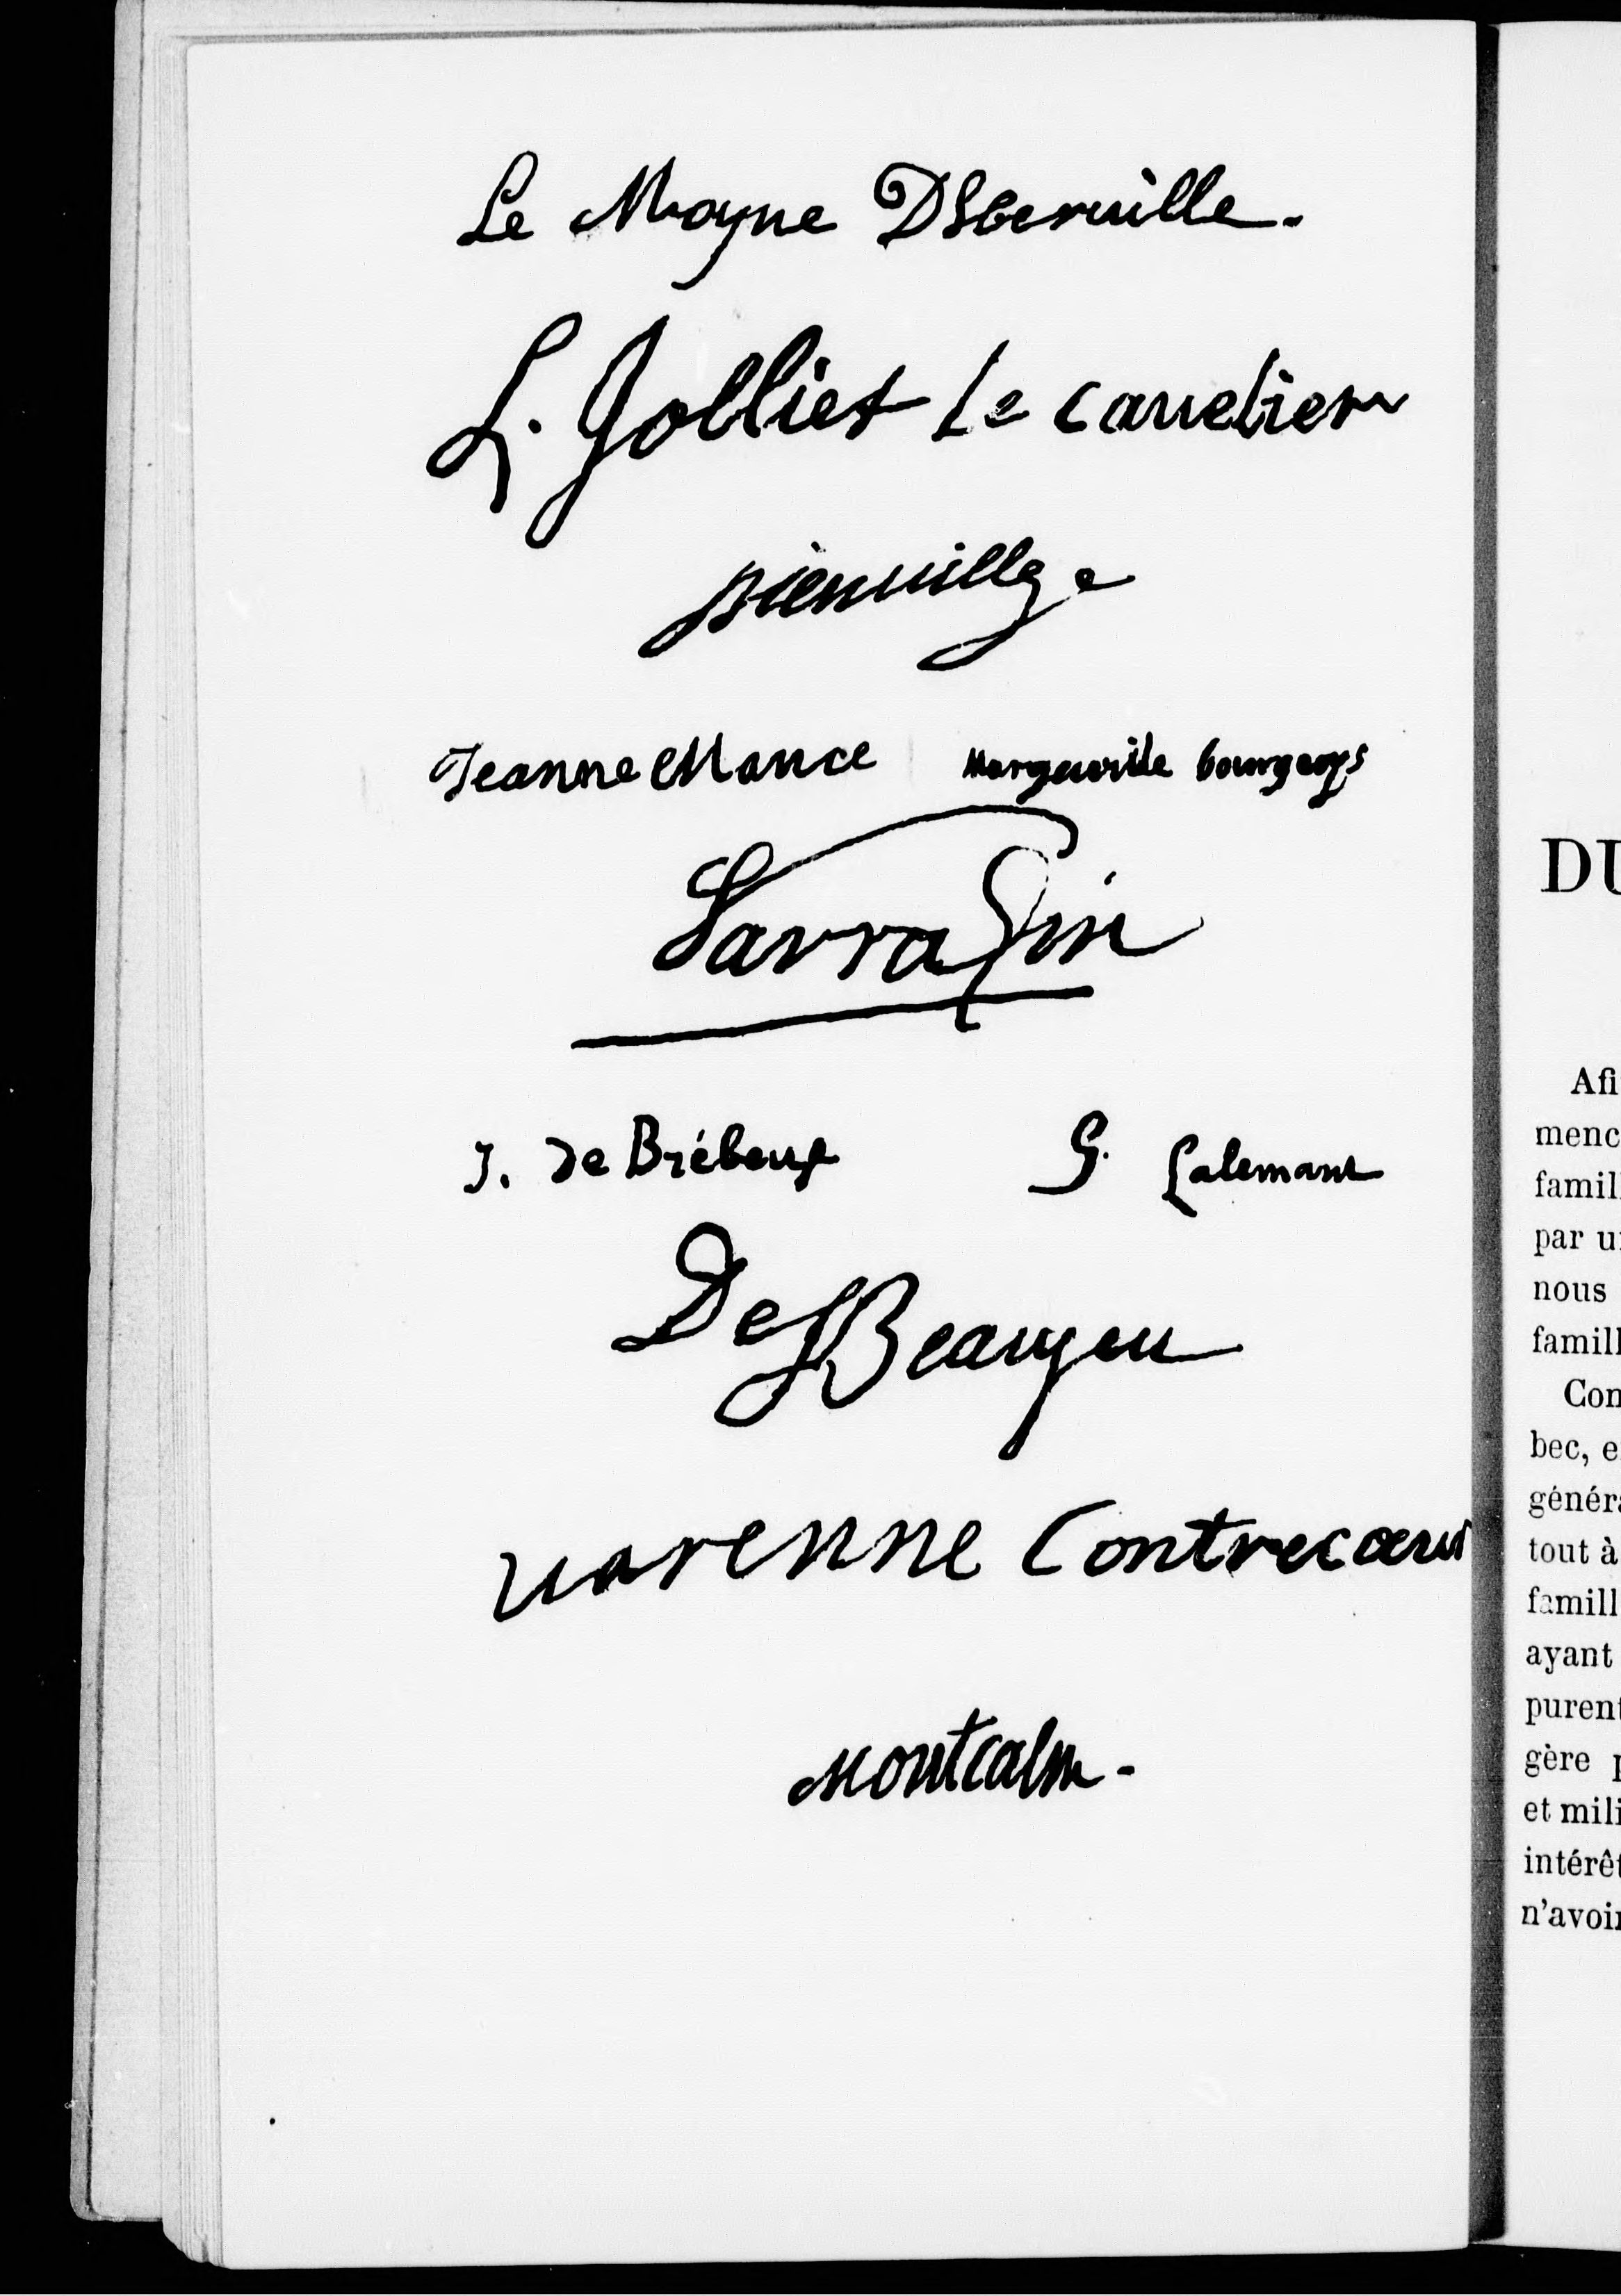 Le Moyne DIberuille.
L. Jolliet Le cauelier
bienuille
Jeanne Mance Marguerite bourgeoys
Sarrasin
J. de Brébeuf G. Lalemant
De Beaujeu
varenne Contrecoeur
Montcalm-
DU
Afi
menc
famil
par u
nous
famill
Con
bec, e
généra
tout à
famill
ayant
purent
gère p
et mili
intérêt
n'avoir